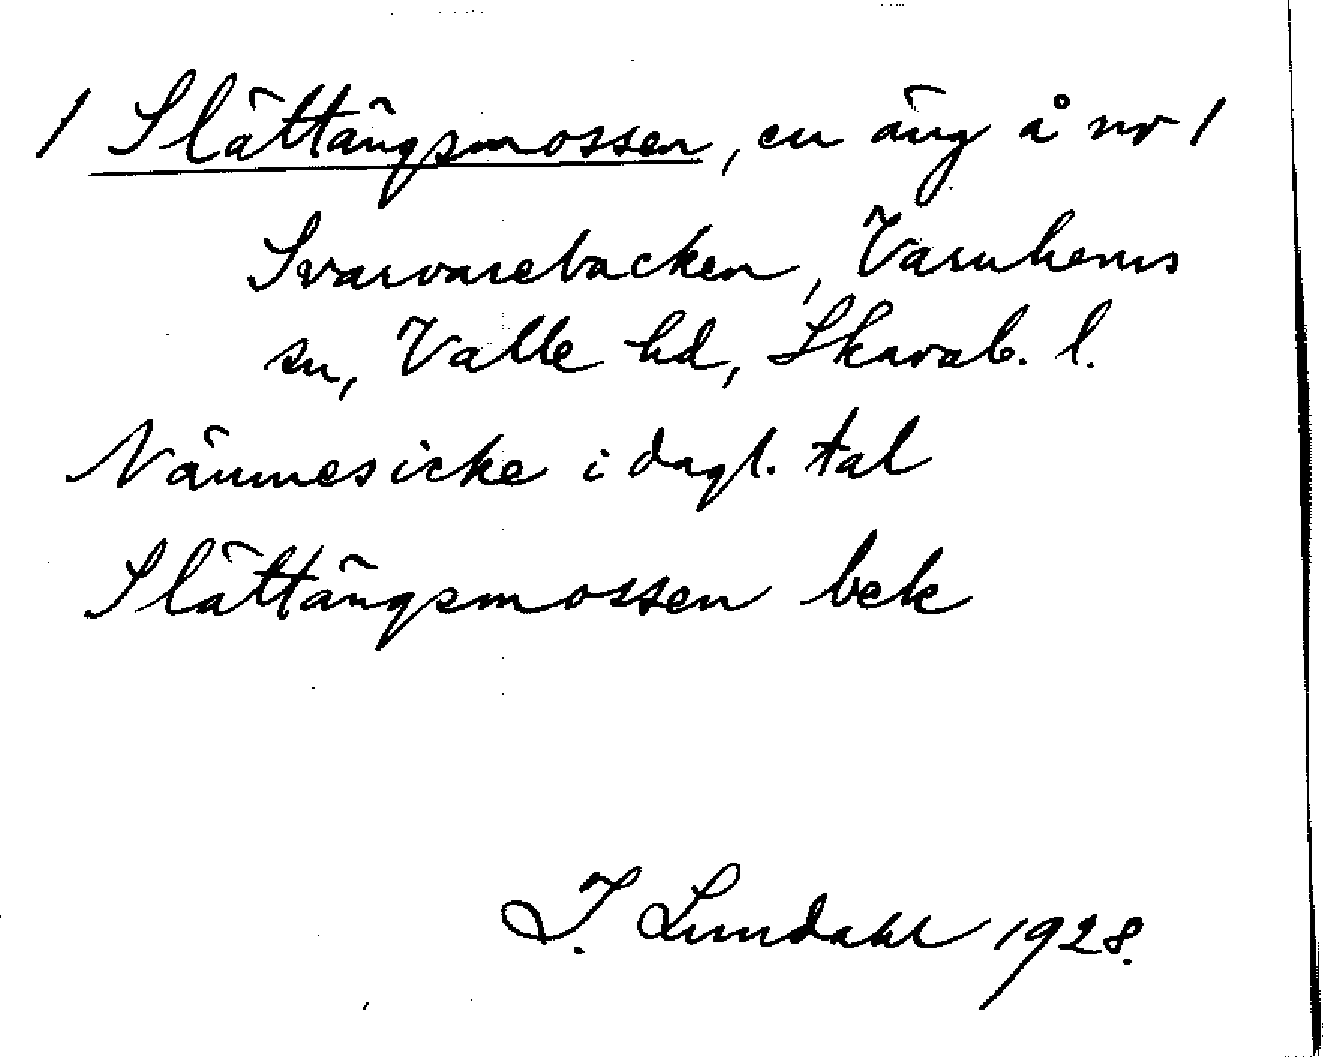 1 Slättängsmossen, en äng å nr 1
Svarvarebacken, Varnhems
sn, Valle hd, Skarab. l.
Nämnes icke i dagl. tal
Slättängsmossen bek
I. Lundahl 1928.